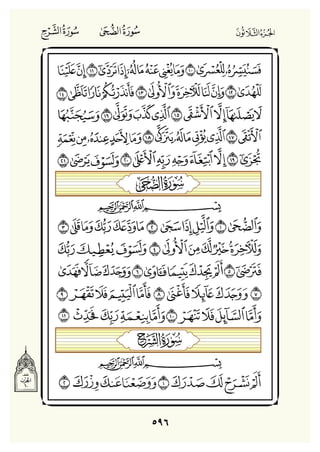 الجُزْءُ الثَّلَاثُونَ سُورَةُ الضُّحَىٰ سُورَةُ الشَّرْحِ
فَسَنُيَسِّرُهُۥ لِلْعُسْرَىٰ ١٠ وَمَا يُغْنِى عَنْهُ مَالُهُۥٓ إِذَا تَرَدَّىٰٓ ١١ إِنَّ عَلَيْنَا
لَلْهُدَىٰ ١٢ وَإِنَّ لَنَا لَلْءَاخِرَةَ وَٱلْأُولَىٰ ١٣ فَأَنذَرْتُكُمْ نَارًا تَلَظَّىٰ ١٤
لَا يَصْلَىٰهَآ إِلَّا ٱلْأَشْقَى ١٥ ٱلَّذِى كَذَّبَ وَتَوَلَّىٰ ١٦ وَسَيُجَنَّبُهَا
ٱلْأَتْقَى ١٧ ٱلَّذِى يُؤْتِى مَالَهُۥ يَتَزَكَّىٰ ١٨ وَمَا لِأَحَدٍ عِندَهُۥ مِن نِّعْمَةٍ
تُجْزَىٰٓ ١٩ إِلَّا ٱبْتِغَآءَ وَجْهِ رَبِّهِ ٱلْأَعْلَىٰ ٢٠ وَلَسَوْفَ يَرْضَىٰ ٢١
سُورَةُ الضُّحَىٰ
بِسْمِ ٱللَّهِ ٱلرَّحْمَٰنِ ٱلرَّحِيمِ
وَٱلضُّحَىٰ ١ وَٱلَّيْلِ إِذَا سَجَىٰ ٢ مَا وَدَّعَكَ رَبُّكَ وَمَا قَلَىٰ ٣
وَلَلْءَاخِرَةُ خَيْرٌ لَّكَ مِنَ ٱلْأُولَىٰ ٤ وَلَسَوْفَ يُعْطِيكَ رَبُّكَ
فَتَرْضَىٰٓ ٥ أَلَمْ يَجِدْكَ يَتِيمًا فَـَٔاوَىٰ ٦ وَوَجَدَكَ ضَآلًّا فَهَدَىٰ
٧ وَوَجَدَكَ عَآئِلًا فَأَغْنَىٰ ٨ فَأَمَّا ٱلْيَتِيمَ فَلَا تَقْهَرْ ٩
وَأَمَّا ٱلسَّآئِلَ فَلَا تَنْهَرْ ١٠ وَأَمَّا بِنِعْمَةِ رَبِّكَ فَحَدِّثْ ١١
سُورَةُ الشَّرْحِ
بِسْمِ ٱللَّهِ ٱلرَّحْمَٰنِ ٱلرَّحِيمِ
أَلَمْ نَشْرَحْ لَكَ صَدْرَكَ ١ وَوَضَعْنَا عَنكَ وِزْرَكَ ٢
٥٩٦